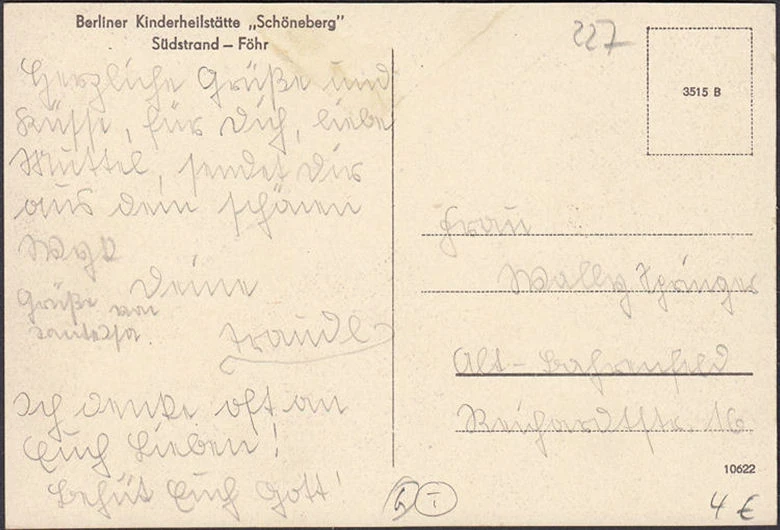 Berliner Kinderheilstätte „Schöneberg"
Südstrand – Föhr
Herzliche Grüße und
Küsse, für Dich, liebe
Muttel, sendet Dir
aus dem schönen
Wyk
Deine
Traudl
Grüße von
Ich denke oft an
Euch Lieben!
Behüt Euch Gott!
227
3515 B
Frau
Wally Springer
Alt-Bahrenfeld
Reichardtstr. 16
10622
4 €